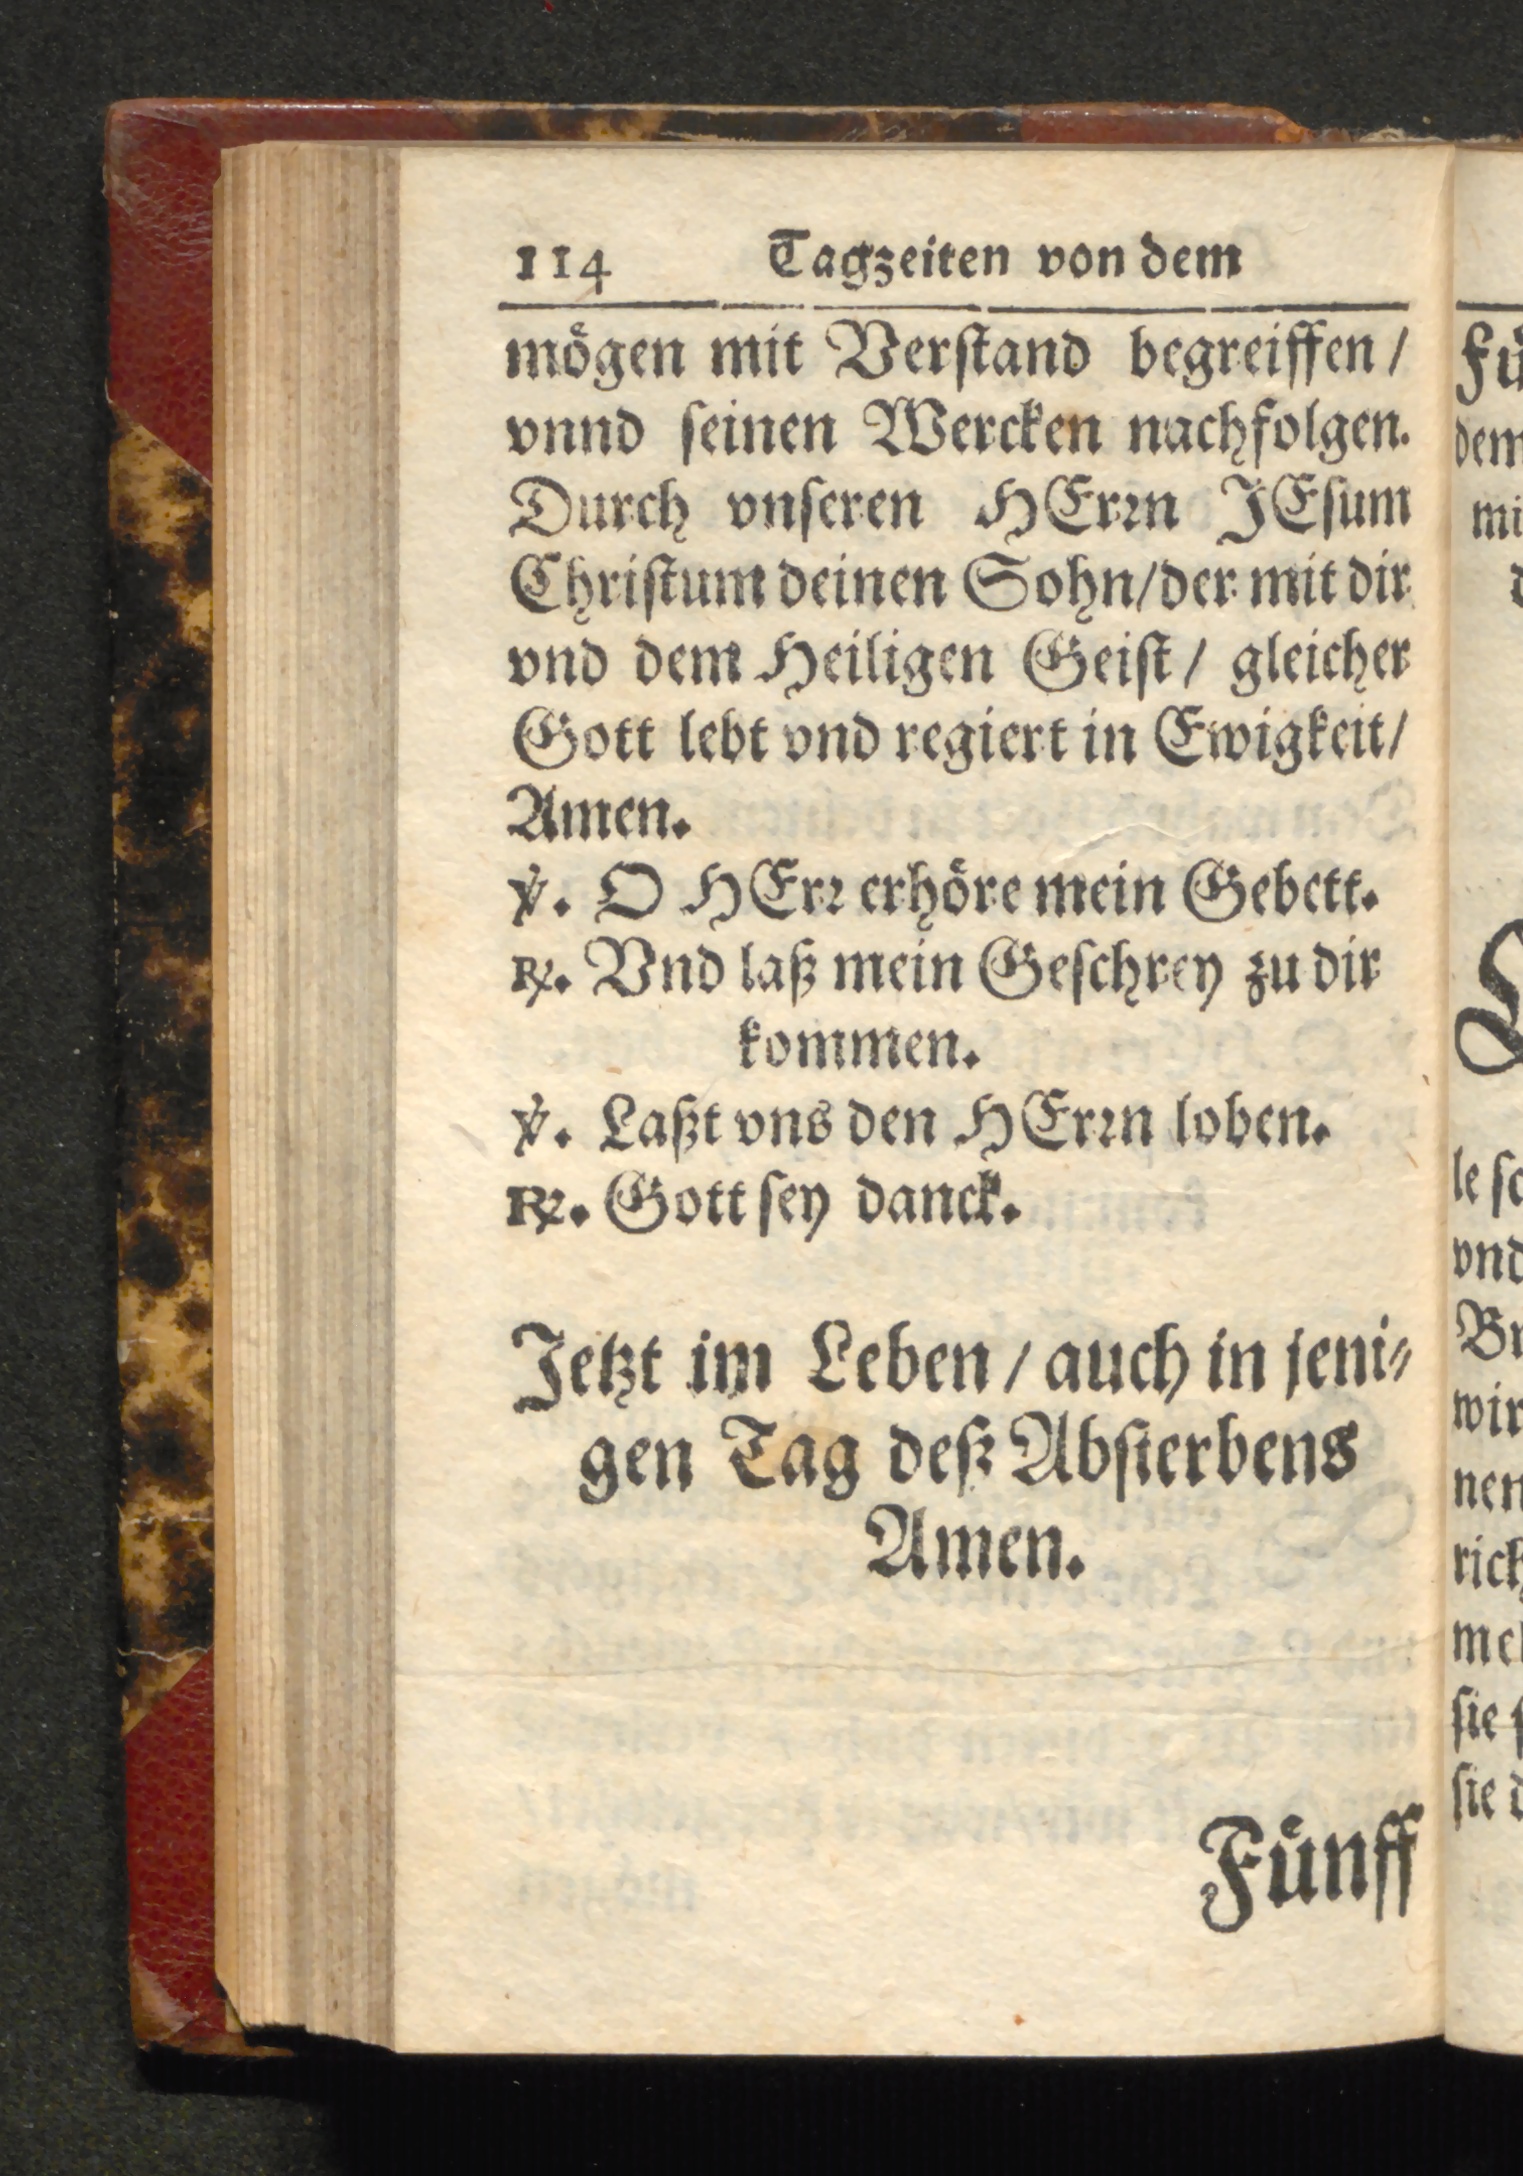 114 Tagzeiten von dem
mögen mit Verſtand begreiffen /
vnnd ſeinen Wercken nachfolgen.
Durch vnſeren HErꝛn JEſum
Chriſtum deinen Sohn/der mit dir
vnd dem Heiligen Geiſt / gleicher
Gott lebt vnd regiert in Ewigkeit/
Amen.
℣. O HErꝛ erhöre mein Gebett.
℟. Vnd laß mein Geſchrey zu dir
kommen.
℣. Laßt vns den HErꝛn loben.
℟. Gott ſey danck.
Jetzt im Leben / auch in jeni⸗
gen Tag deß Abſterbens
Amen.
Fünff